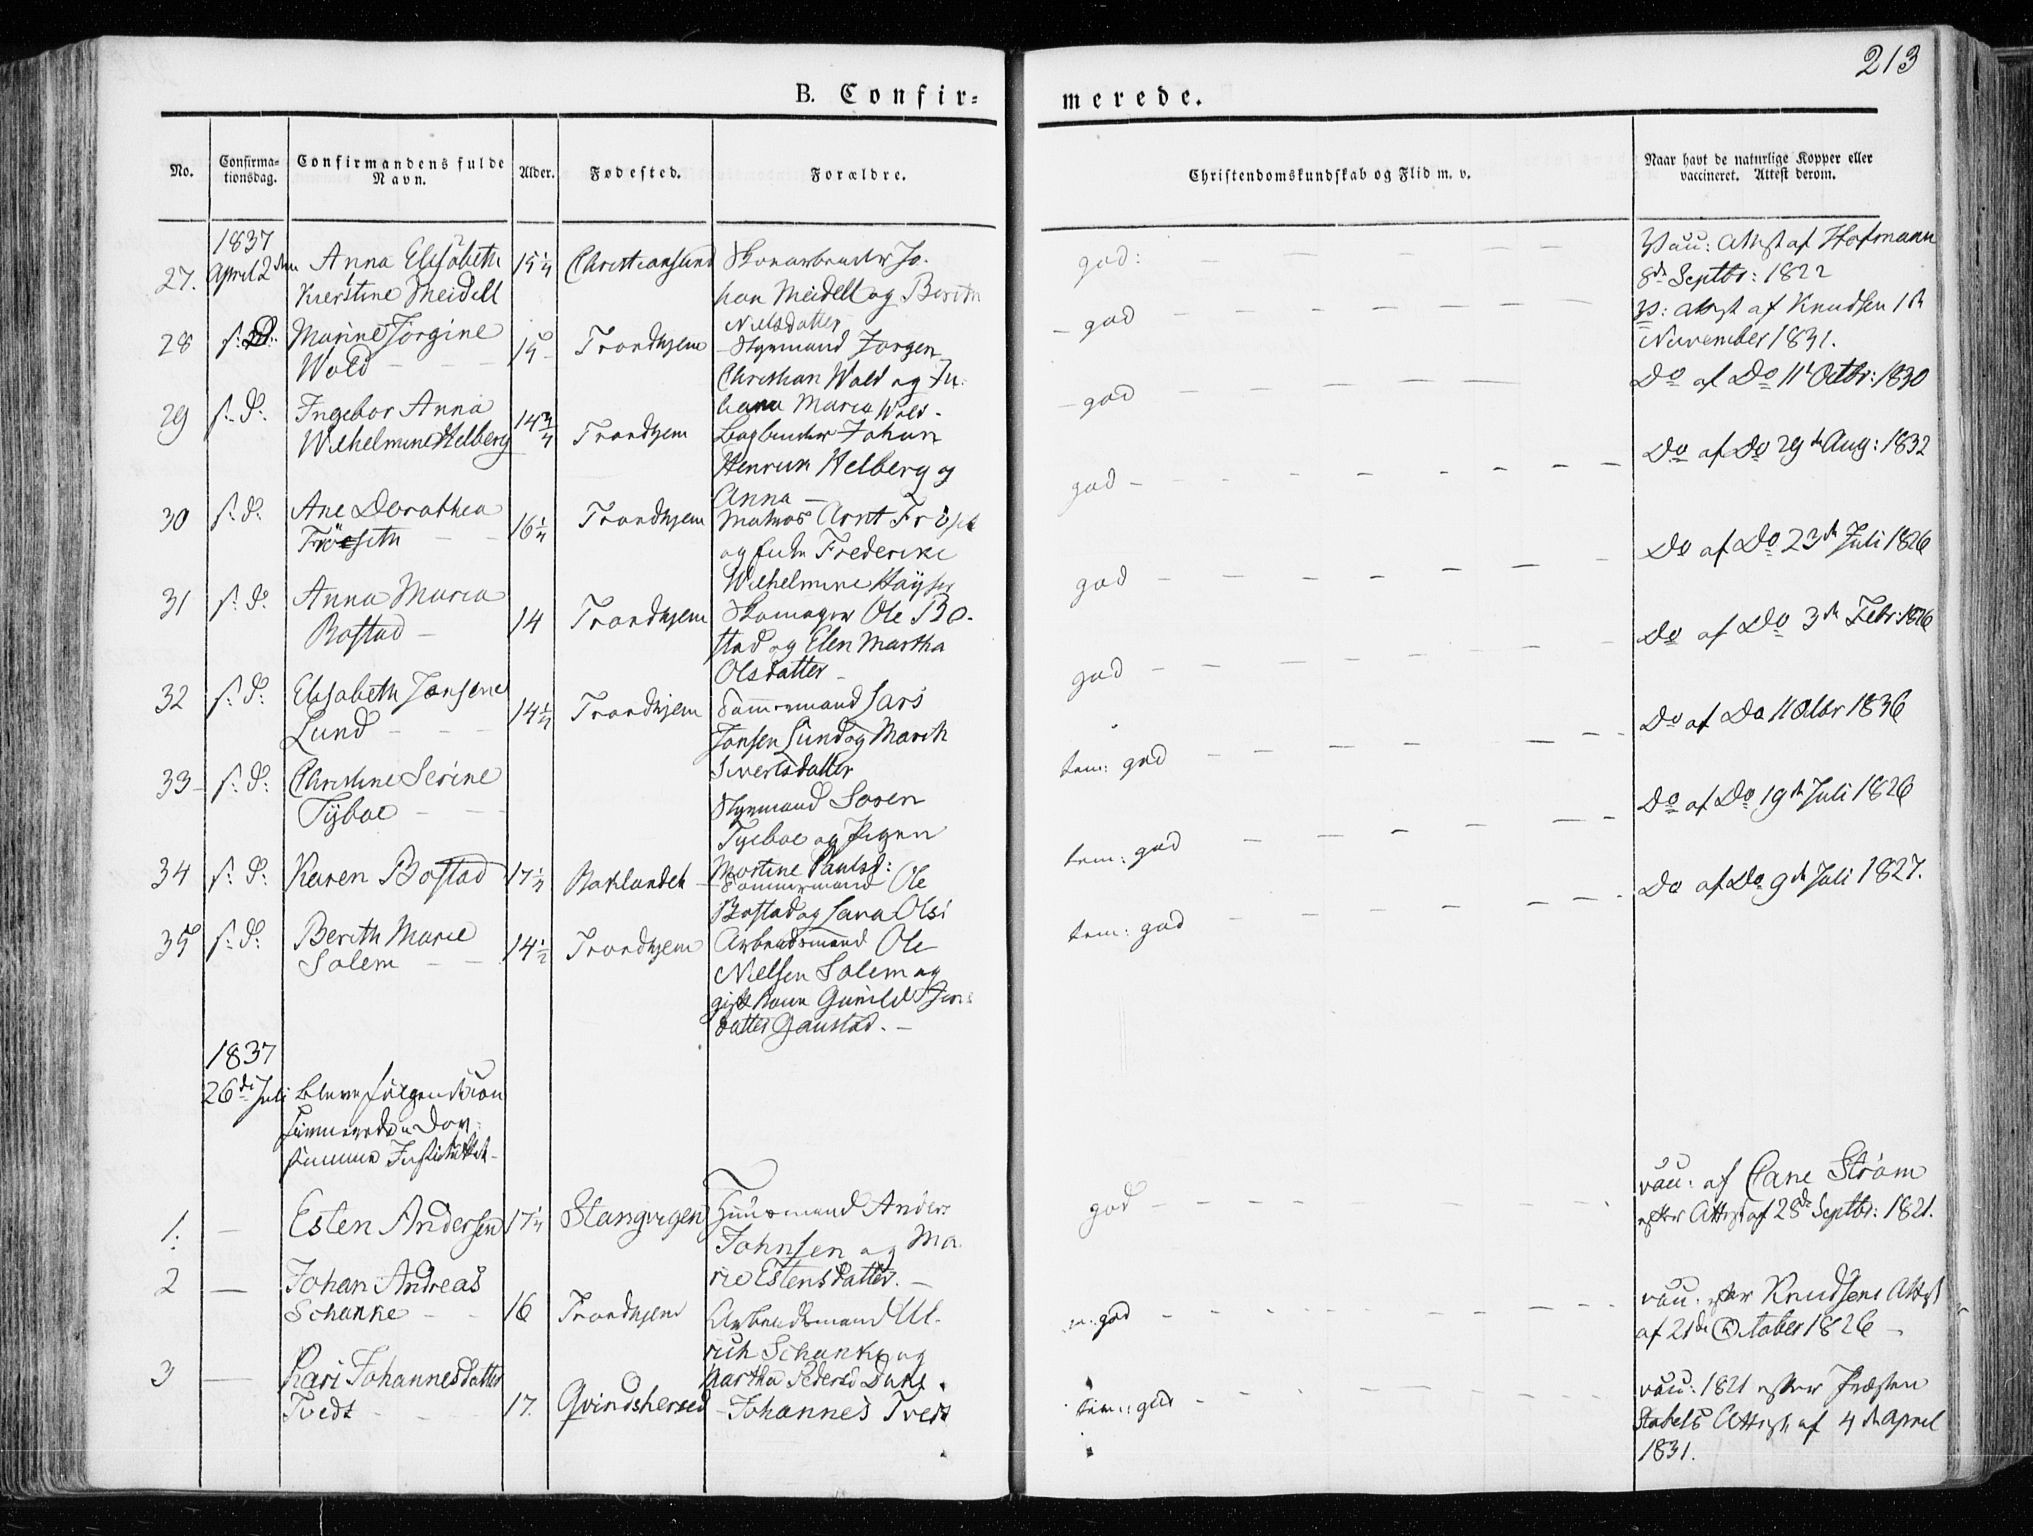 213
B. Confir-
merede.
No.
Confirma-
tionsdag.
Confirmandens fulde
Navn.
Alder.
Fødested.
Forældre.
Christendomskundskab og Flid m. v.
Naar havt de naturlige Kopper eller
vaccineret. Attest derom.
1837
27. April 2den Anna Elisabeth 15¼ Christiansund Johan Meidell og Berith
Kierstine Meidell
Nielsdatter
god:
Vacc: Attest af Hofmann
8de Septbr: 1822
28 s: D: Marine Jørgine 15 Trondhjem Styrmand Jørgen
Wold
Christian Wold og Ju-
liana Maria Wold
god
V: Attest af Knudsen 1ste
November 1831.
29 s: d: Ingebor Anna 14¾ Trondhjem Johan
Wilhelmine Helberg
Henrich Helberg og
Anna
god
Do af Do 11te Octbr: 1830
30 s: d: Ane Dorothea 16¼ Trondhjem Matros Arnt
og Frederike
Wilhelmine
god
Do af Do 29de Aug: 1832
31 s: d: Anna Maria 14 Trondhjem Skomager Ole Bo-
Bostad
stad og Elen Martha
Olsdatter
god
Do af Do 23de Juli 1826
32 s: d: Elisabeth Jonsene 14¼ Trondhjem Tømmermand Lars
Lund
Jonsen Lund og Marith
Sivertsdatter
god
Do af Do 3de Febr: 1826
33 s: d: Christine Serine
Tyboe
Styrmand Soren
Tyeboe og Pigen
Martine Paulsd:
tem: god
Do af Do 11 Octbr 1836
34 s: d: Karen Bostad 17½ Baklandet Tømmermand Ole
Bostad og Sara Olsd
tem: god
Do af Do 19de Juli 1826
35 s: d: Berith Marie 14½ Trondhjem Arbeidsmand Ole
Solem
Nielsen Solem og
Gunild
datter Gaustad.
tem: god
Do af Do 9de Juli 1827.
1837
26de Juli bleve følgende con
firmerede i Døv-
stumme Institutet
1. Esten Andersen 17¼ Stangvigen Huusmand Anders
Johnsen og Ma-
rie Estensdatter.
god
vacc: af Cane Strøm
efter Attest af 28de Septbr: 1821.
2 Johan Andreas
Schanke 16 Trondhjem Arbeidsmand Ul-
rich Schanke og
Martha Pedersd
god
vacc. efter Knudsens Attest
af 21de October 1826
3 Kari Johannesdatter
Tvedt 17. Qvindsherred Johannes Tvedt
tem: god
vacc: 1821 efter Præsten
Stabels Attest af 4de April
1831.